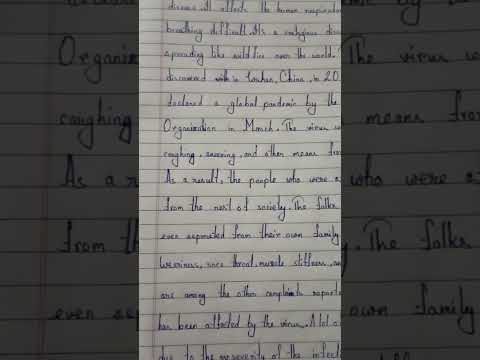 disease. It affects the human respirator
breathing difficult. It's a contagious dise
spreading like wildfire over the world.
discovered in Wuhan, China, in 20
declared a global pandemic by the
Organization in March. The virus w
coughing, sneezing, and other means from
As a result, the people who were a
from the rest of society. The folks
even seperated from their own family
weariness, sore throat, muscle stiffness, an
are among the other complaints reporte
has been affected by the virus. A lot o
due to the severity of the infect